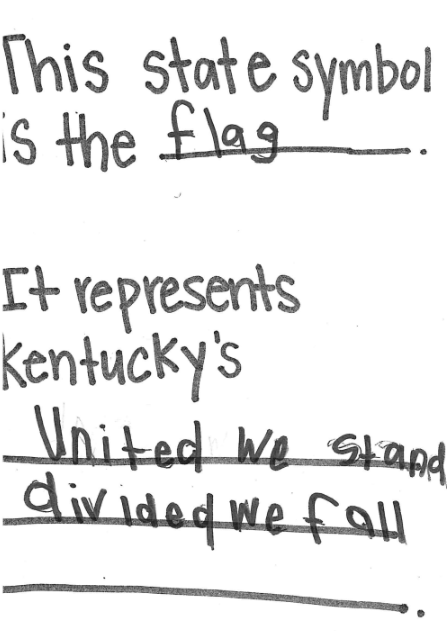 This state symbol
is the flag.
It represents
Kentucky's
United we stand
divided we fall
.